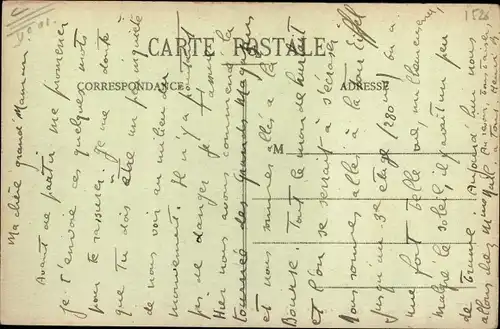 CARTE POSTALE
CORRESPONDANCE
ADRESSE
M
Ma chère grand'Maman,
Avant de partir me promener
je t'envoie ces quelques mots
pour te rassurer. Je me doute
que tu dois être un peu inquiète
de nous voir au milieu du
mouvement. Il n'y a pourtant
pas de danger je t'assure.
Hier nous avons commencé la
tournée des Grands Magasins
et nous sommes allés à la
Bourse. Tout le monde hurlait
et l'on se serrait à s'écraser
Nous sommes allés à la Tour Eiffel
jusqu'au 3e étage (280m) on a
une fort belle vue, malheureusement,
malgré le soleil, il y avait un peu
de brume. Aujourd'hui nous
allons
Au revoir,